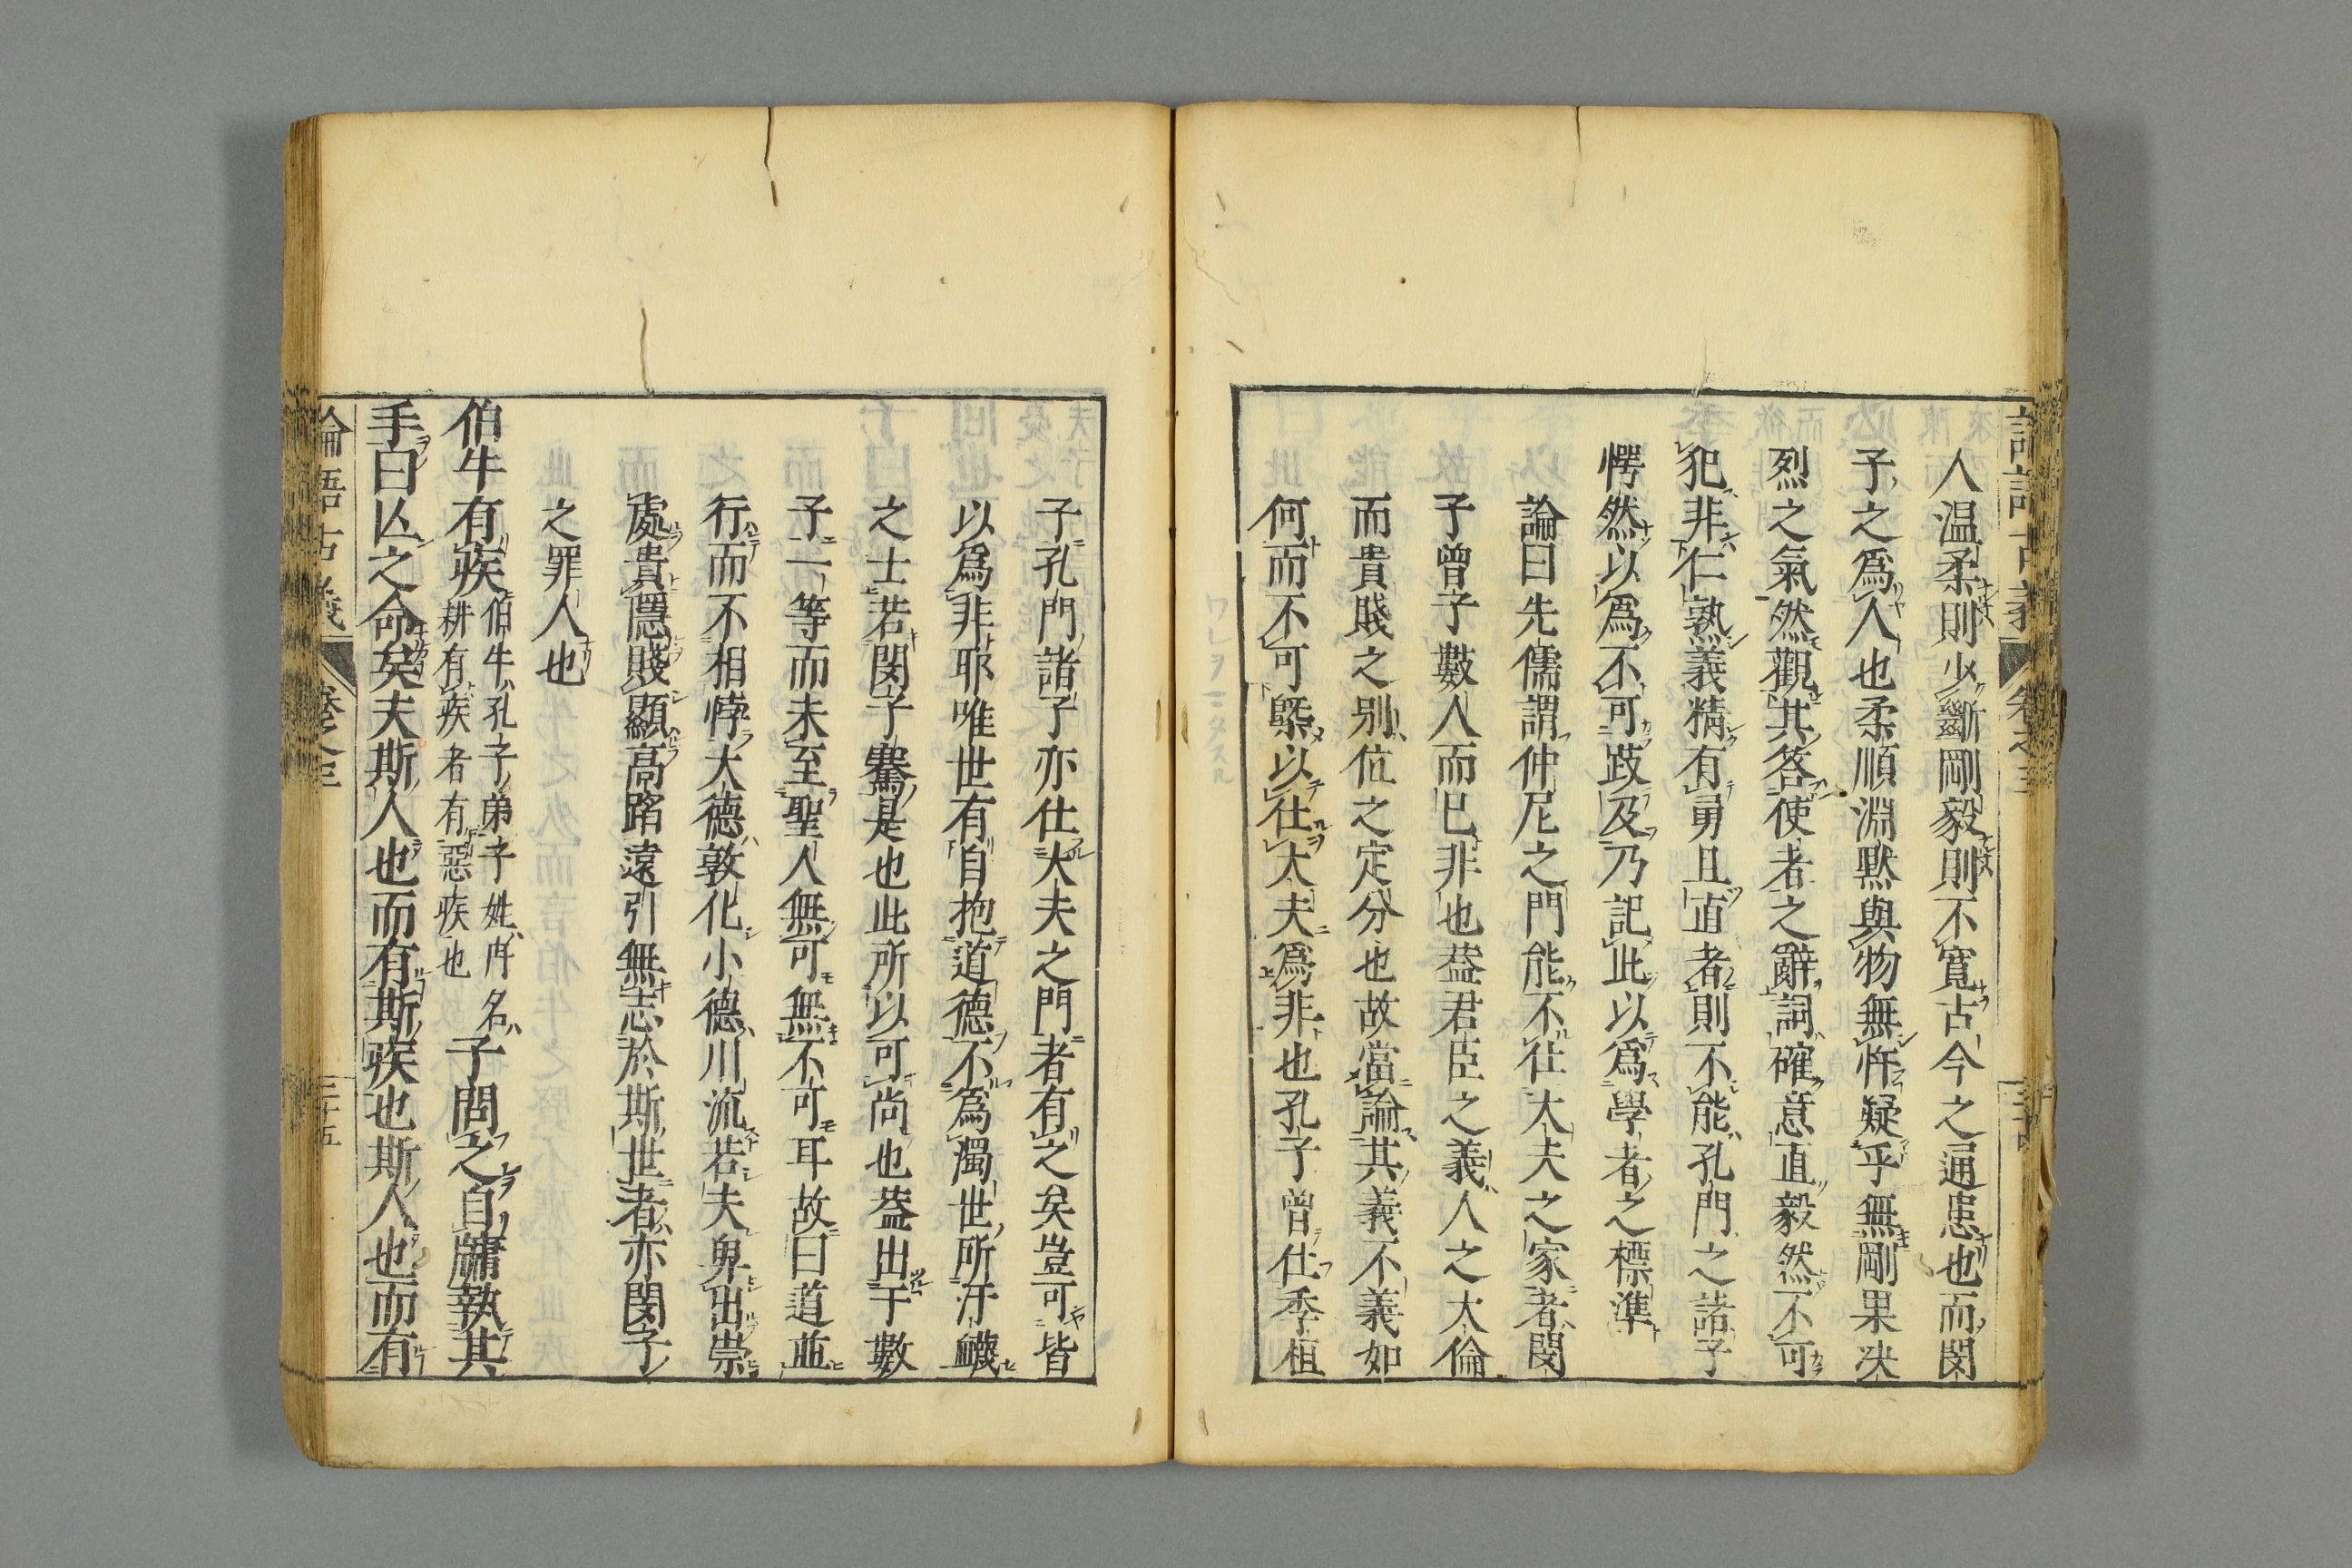 人温柔則少斷剛毅則不寬古今之通患也而閔
子之爲人也柔順淵黙與物無忤疑乎無剛果决
烈之氣然觀其答使者之辭詞確意直毅然不可
犯非仁熟義精有勇且直者則不能孔門之諸子
愕然以爲不可跂及乃記此以爲學者之標準
論曰先儒謂仲尼之門能不仕大夫之家者閔
子曾子數人而已非也葢君臣之義人之大倫
而貴賤之别位之定分也故當論其義不義如
何而不可槩以仕大夫爲非也孔子曾仕季桓
子孔門諸子亦仕大夫之門者有之矣豈可皆
以爲非耶唯世有自抱道德不爲濁世所汙衊
之士若閔子騫是也此所以可尚也葢出于數
子一等而未至聖人無可無不可耳故曰道並
行而不相悖大德敦化小德川流若夫卑出崇
處貴隱賤顯高蹈遠引無志於斯世者亦閔子
之罪人也
伯牛有疾
伯牛孔子弟子姓冉名
耕有疾者有惡疾也
子問之自牖執其
手曰亾之命矣夫斯人也而有斯疾也斯人也而有
論語古義
卷之三
三十五